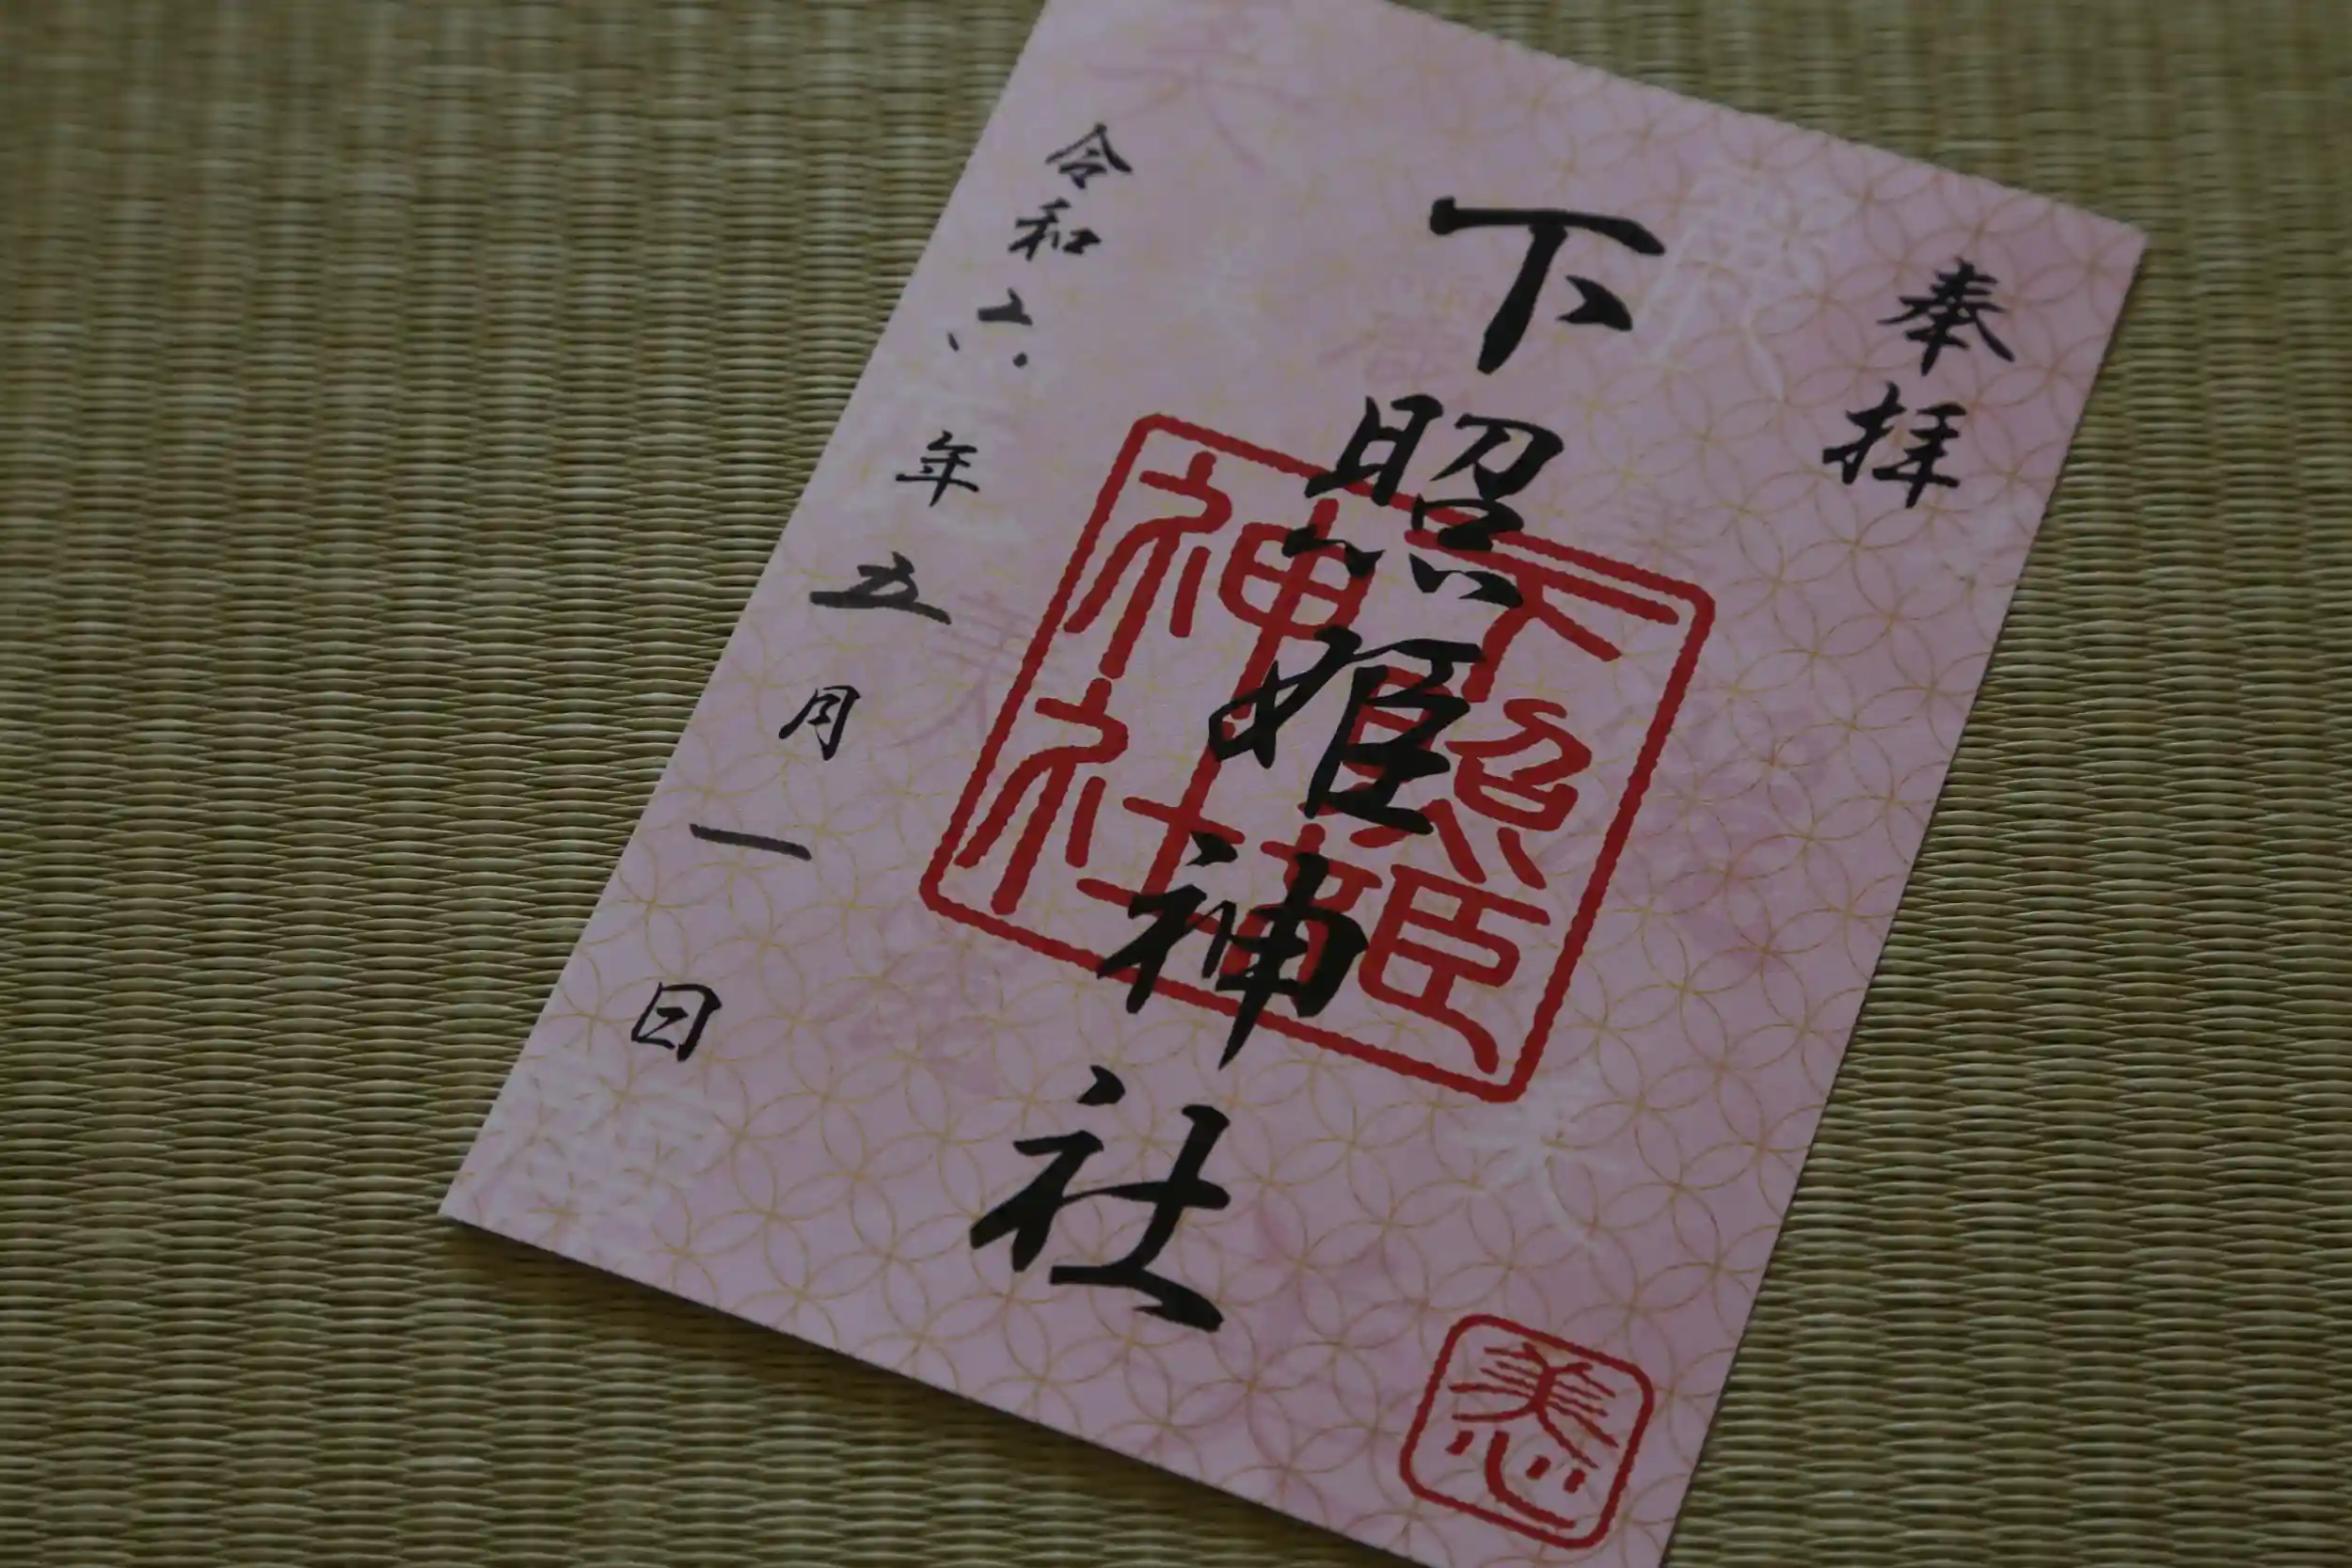 奉拝
下照姫神社
令和六年五月一日
下照姫
神社
美心